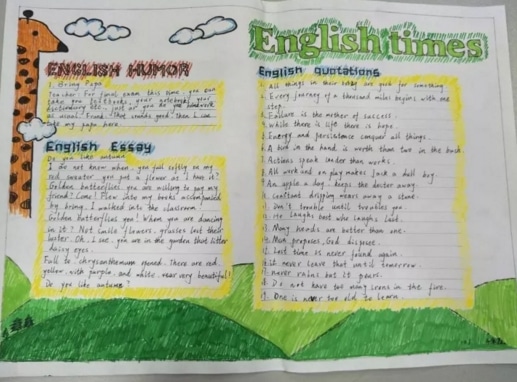 English times
ENGLISH HUMOR
1. Bring Papa
Teacher: For final exam this time, you can
take you textbooks, your notebooks your
dictionary etc. just as you do the homework
as usual. Found: That sounds good. Then I
take my papa here.
English Essay
Do you like autumn
I do not know when, you fall softly on my
red sweater, you put a flower at
Golden butterflies, you are willing to pay my
friend? Come! Flew into my books accompanied
by bring. I walked into the classroom.
Golden butterflies you! When you are dancing
in it? Not smile flowers, grasses lost their
luster. Oh, I see, you are in the garden that litter
daisy eyes.
Full to chrysanthemum opened. There are red,
yellow, with purple, and white, very beautiful!
Do you like autumn?
English quotations
1. All things in their being are good for something.
2. Every journey of a thousand miles begins with one
step.
3. Failure is the mother of success.
4. While there is life there is hope.
5. Energy and persistence conquer all things.
6. A bird in the hand is worth than two in the bush.
7. Actions speak louder than works.
8. All work and on play makes jack a dull boy.
9. An apple a day keeps the doctor away.
10. Constant dripping wears away a stone.
11. Don't trouble until troubles you.
12. He laughs best who laughs last.
13. Many heads are better than one.
14. Man proposes, God dispose.
15. Lost time is never found again.
16. never leave that until tomorrow.
17. never rains but it pours.
18. Do not have too many irons in the fire.
19. One is never too old to learn.